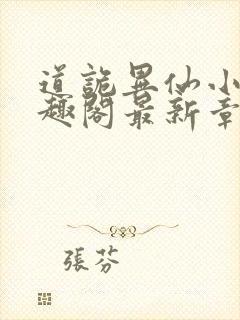 道詭異仙小
趣閣最新章
張芬